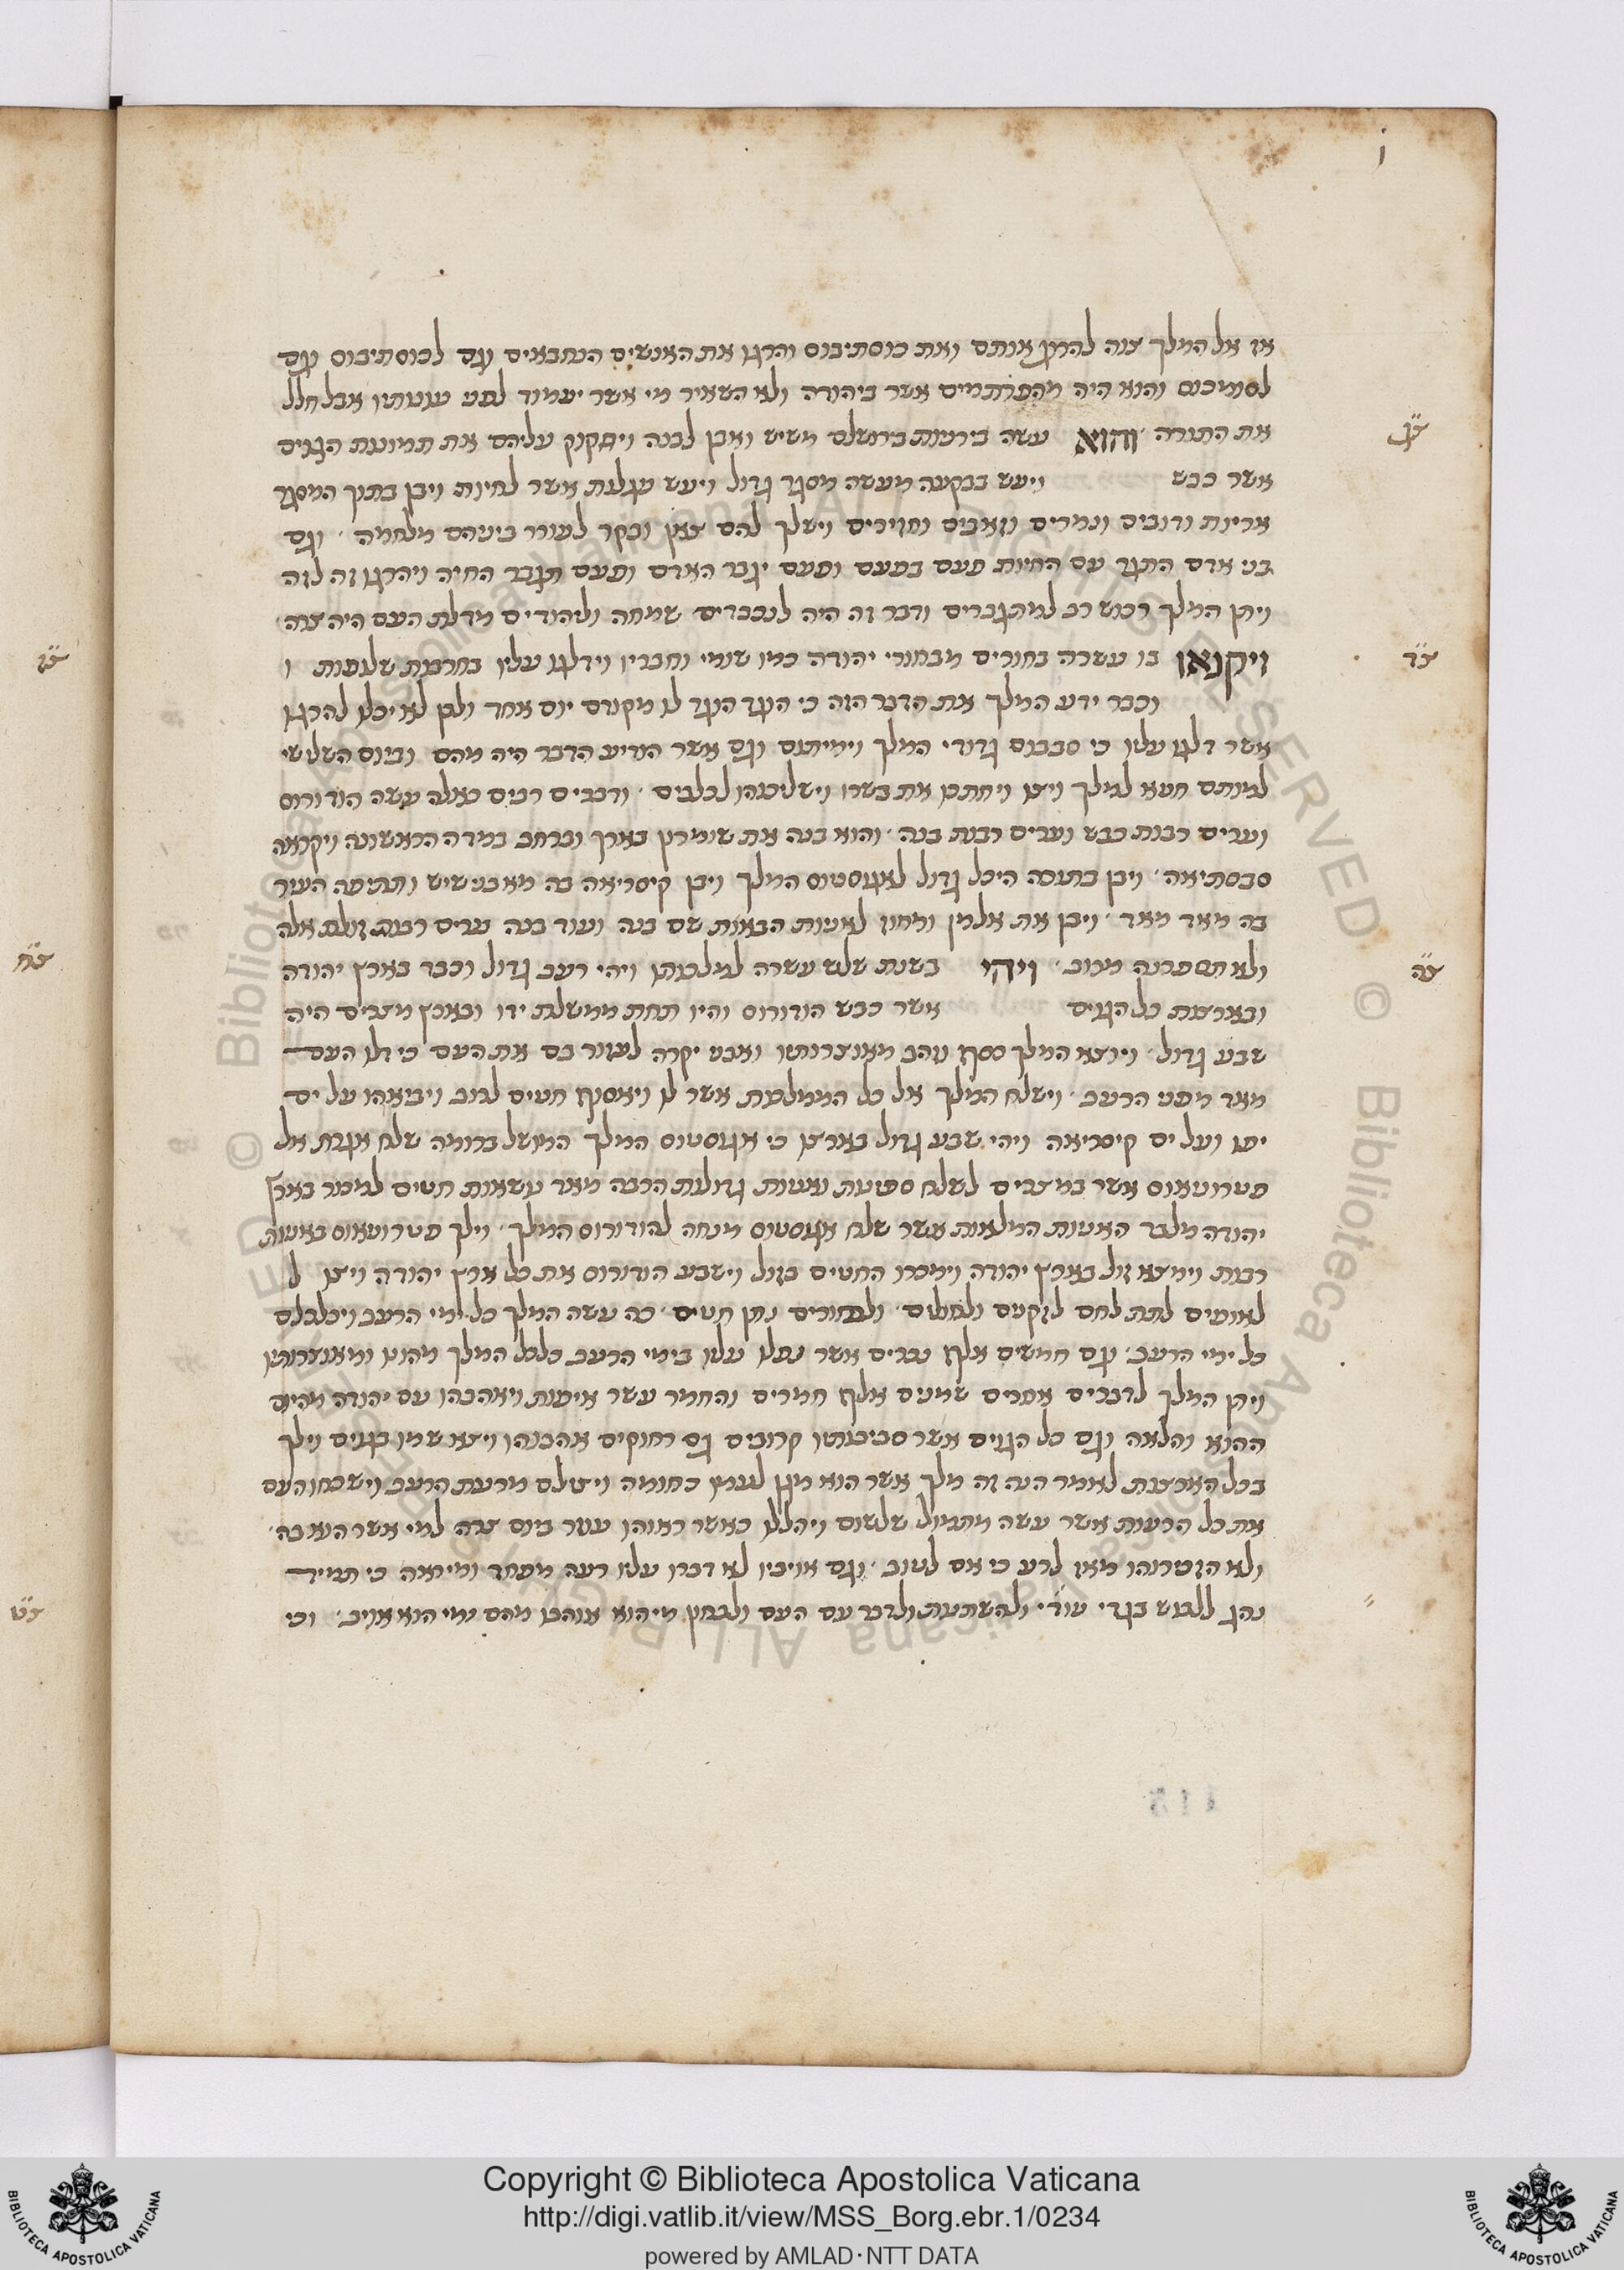 אז אל המלך צוה להרוג אותם ואת כוסתיבוס והרגו את האנשים הנחבאים וגם לכוסתיבוס וגם
והוא היה מהפרתמים אשר ביהודה ולא השאיר מי אשר יעמוד לפני אבל חלל
את התורה והוא עשה בירושלם משיש ואבן לבנה ויחקוק עליהם את תמונת הגוים
אשר כבש ויעש בבקעה מעשה מסגר גדול ויעש עגלות אשר לחיות ויבן בתוך המסגר
אריות ודובים ונמרים וזאבים וחזירים וישלך להם צאן ובקר לעורר ביניהם מלחמה וגם
בני אדם התגר עם החיות פעם בפעם ופעם יגבר האדם ופעם תגבר החיה ויהרגו זה לזה
ויתן המלך רכוש רב למתגברים ודבר זה היה לנכברים שמחה וליהודים מדלת העם היה צרה
ויקנאו בו עשרה בחורים מבחורי יהודה כמו שומי וחבריו וידלגו עליו בחרבות שלופות ו
וכבר ידע המלך את הדבר הזה כי הוגד הוגד לו מקודם יום אחד ולכן לא יכלו להרגו
אשר דלגו עליו כי סבבום גדודי המלך וימיתום וגם אשר הודיע הדבר היה מהם וביום השלישי
למותם חטא למלך ויצו ויחתכו את בשרו וישליכוהו לכלבים ודברים רבים כאלה עשה הורודוס
וערים רבות כבש וערים רבות בנה והוא בנה את שומרון באורך וברחב במדה הראשונה ויקראה
סבסתיאה ויבן בתוכה היכל גדול לאגוסטוס המלך ויבן קיסריאה בה מאבני שיש ותהי העיר
בה מאד מאד ויבן את ומחוז לאניות הבאות שם בנה ועוד בנה ערים רבות זולת אלה
ולא תספרנה מרוב ויהי בשנת שלש עשרה למלכותו ויהי רעב גדול וכבד בארץ יהודה
ובארצות כל הגוים אשר כבש הורודוס והיו תחת ממשלת ידו ובארץ מצרים היה
שבע גדול ויוצא המלך כסף וזהב מאוצרותיו ואבני יקרה לעזור בם את העם כי דל העם
מאד מפני הרעב וישלח המלך אל כל הממלכות אשר לו ויאסוף חטים לרוב ויביאהו על ים
יפו ועל ים קיסריאה ויהי שבע גדול בארצו כי אגוסטוס המלך המושל ברומה שלח אגרת אל
פטרוניאוס אשר במצרים לשלוח ספינות ואניות גדולות הרבה מאד עשאות חטים למכור בארץ
יהודה מלבד האניות המלאות אשר שלח אגוסטוס מנחה להורודוס המלך וילך פטרוניאוס באניות
רבות וימצא זול בארץ יהודה וימכרו החטים בזול וישבע הורודוס את כל ארץ יהודה ויצו ל
לאופים לתת לחם לזקנים ולחולים ולבחורים נתן חטים כה עשה המלך כל ימי הרעב ויכלכלם
כל ימי הרעב וגם חמשים אלף גברים אשר נפלו עליו בימי הרעב כלכל המלך מהונו ומאוצרותיו
ויתן המלך לדברים אחרים שמונים אלף חמרים והחמר עשר איפות ויאהבהו עם יהודה מהיום
ההוא והלאה וגם כל הגוים אשר סביבותיו קרובים גם רחוקים אהבוהו ויצא שמו בגוים וילך
בכל הארצות לאמר הנה זה מלך אשר הוא מגן לעמו כחומה ויצילם מרעת הרעב וישכחו העם
את כל הרעות אשר עשה מתמול שלשום ויהללו כאשר ראוהו עוזר ביום צרה למי אשר הוא בה
ולא הזכירוהו מאז לרע כי אם לטוב וגם אויביו לא דברו עליו רעה מפחד ומיראה כי תמיד
נהג ללבוש בגדי עורי ולהשתעות ולדבר עם העם ולבחון מי הוא אוהבו מהם ומי הוא אויב וכי
צג
צד
צה
צז
צח
צט
Copyright © Biblioteca Apostolica Vaticana
http://digi.vatlib.it/view/MSS_Borg.ebr.1/0234
powered by AMLAD·NTT DATA
BIBLIOTECA APOSTOLICA VATICANA
BIBLIOTECA APOSTOLICA VATICANA